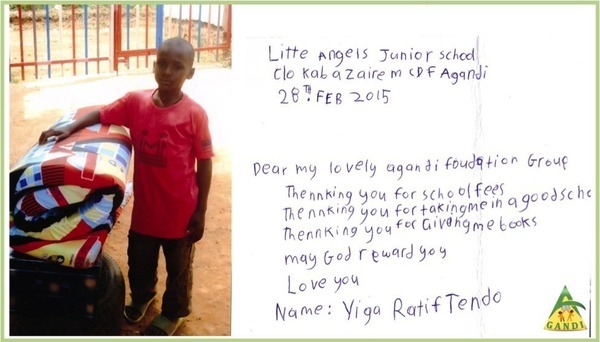 Little Angels Junior school
C/o Kabazairem CDF Agandi
28TH. FEB 2015
Dear my lovely agandi foudation Group
Thennking you for school fees
Thennking you for takingme in a goodscho
Thennking you for Givingme books
may God reward you
Love you
Name: Yiga Ratif Tendo
GANDI